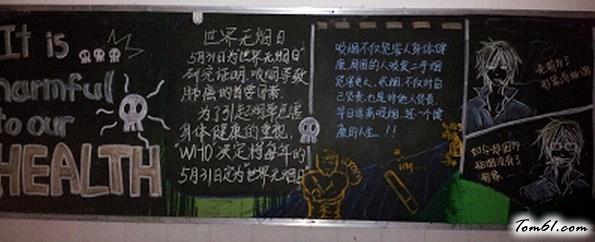 It is
harmful
to our
HEALTH
世界无烟日
5月31日为"世界无烟日"
研究证明,吸烟导致
肺癌的首要因素.
为了引起烟草危害
身体健康的重视,
"WHO"决定将每年的
5月31日定为"世界无烟日"
吸烟不仅危害人身体健
康,周围的人吸食二手烟
危害更大,戒烟,不仅对自
己负责,也是对他人负责,
早日远离吸烟,一个健
康的人生.!!
没有了
形象...
Tom61.com